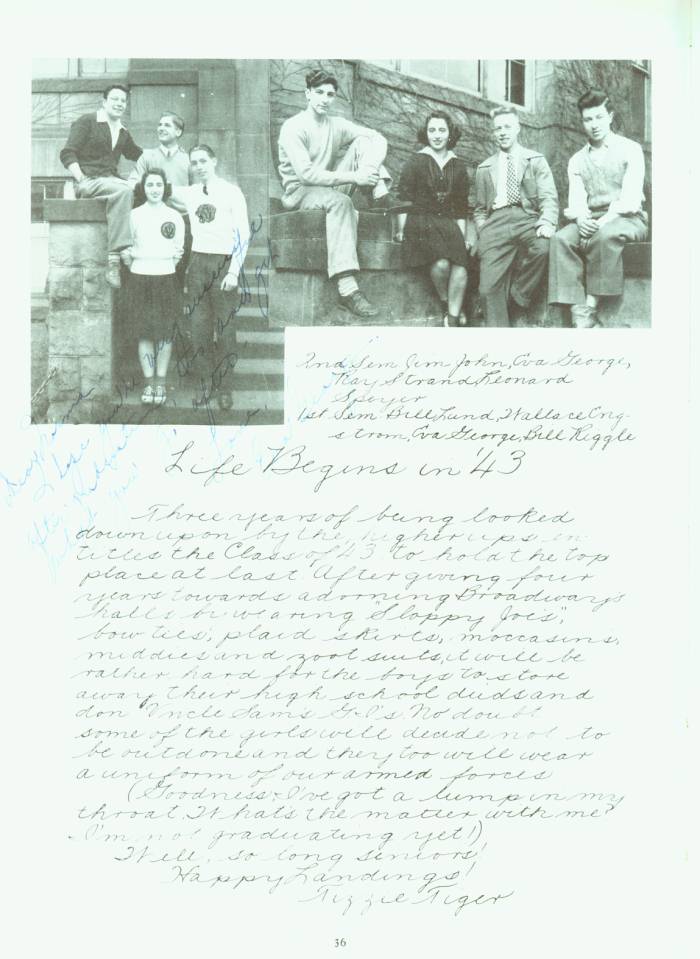 2nd Sem Jim John, Eva George,
Ray Strand Leonard
Speyer
1st Sem Bill Lund, Wallace Eng-
strom, Eva George, Bill Riggle
Life Begins in '43
Three years of being looked
down upon by the higher ups en-
titles the Class of 43 to hold the top
place at last. After giving four
years towards adorning Broadway's
halls by wearing "Sloppy Joe's",
bow ties, plaid skirts, moccasins,
middies and zoot suits, it will be
rather hard for the boys to store
away their high school duds and
don Uncle Sam's G-I's. No doubt
some of the girls will decide not to
be outdone and they too will wear
a uniform of our armed forces
(Goodness. I've got a lump in my
throat. What's the matter with me?
I'm not graduating yet!)
Well, so long seniors!
Happy Landings!
Tizzie Tiger
36